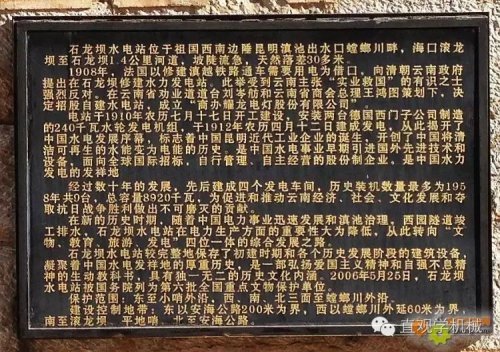 石龙坝水电站位于祖国西南边陲昆明滇池出水口螳螂川畔，海口滚龙
坝至石龙坝1.4公里河道，坡陡流急，天然落差30多米。
1908年，法国以修建滇越铁路通车需要用电为借口，向清朝云南政府
提出在石龙坝修建水力发电站。此举受到云南主张“实业救国”的有识之士
强烈反对。在云南省劝业道台刘岑舫和云南省商会总理王鸿图策划下，决
定招股自建水电站，成立“商办耀龙电灯股份有限公司”
电站于1910年农历七月十七日开工建设，安装两台德国西门子公司制造
的240千瓦水轮发电机组，于1912年农历四月十二日建成发电，从此揭开了
中国水电发展序幕，标志着中国昆明近代工业企业的诞生，开创了中国将清
洁可再生的水能变为电能的历史。是中国水电事业早期引进国外先进技术和
设备，面向全球国际招标，自行管理、自主经营的股份制企业，是中国水力
发电的发祥地
经过数十年的发展，先后建成四个发电车间，历史装机数量最多为195
8年共9台，总容量8920千瓦，为促进和推动云南经济、社会、文化发展和夺
取抗日战争胜利做出不可磨灭的贡献。
在新的历史时期，随着中国电力事业迅速发展和滇池治理，西园隧道竣
工排水，石龙坝水电站在电力生产方面的重要性大为降低，从此转向“文
物、教育、旅游、发电”四位一体的综合发展之路。
石龙坝水电站较完整地保存了初建时期和各个历史发展阶段的建筑设备，
凝聚着中国水电发祥地的厚重历史，是一部弘扬爱国主义精神和自强不息精
神的生动教科书，具有独一无二的历史文化内涵。2006年5月25日，石龙坝
水电站被国务院列为第六批全国重点文物保护单位。
保护范围：东至小哨外沿，西、南、北三面至螳螂川外沿。
建设控制地带：东以安海公路200米为界，西以螳螂川外延60米为界，
南至滚龙坝、平地哨，北至安海公路。
直观学机械